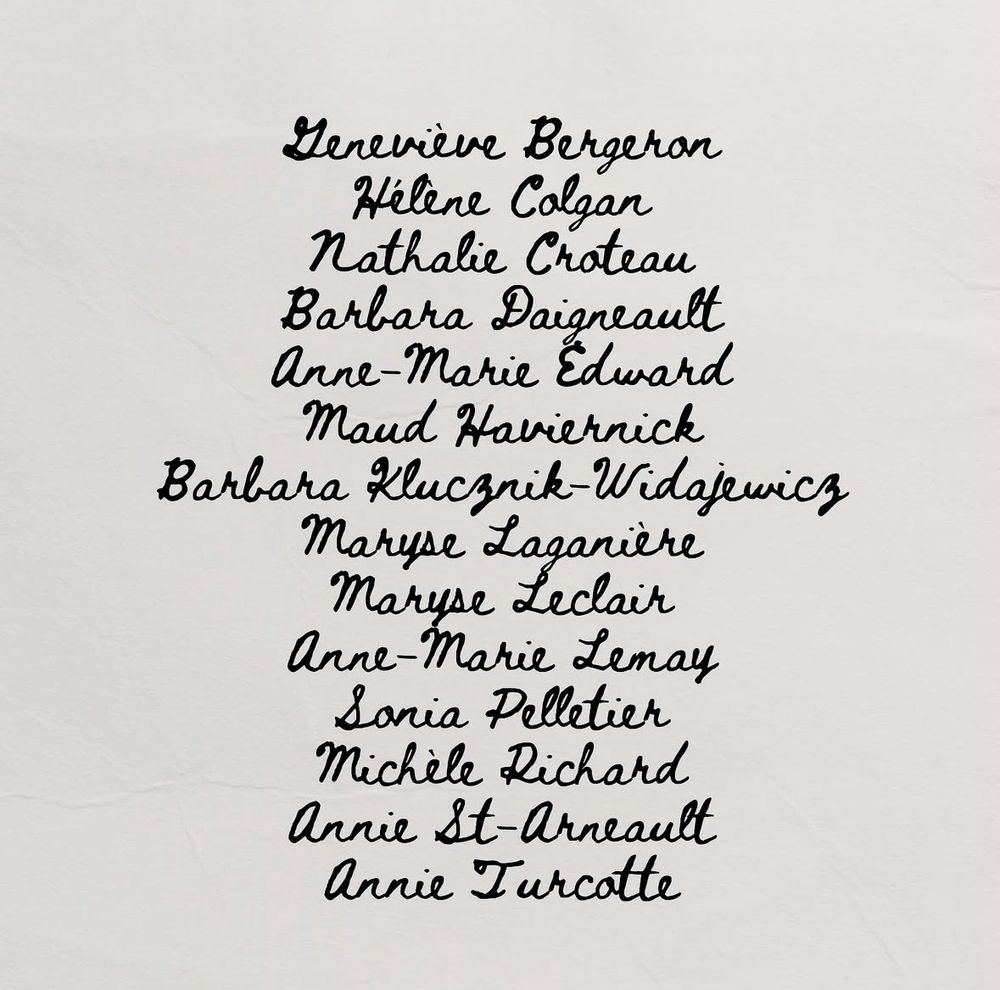 Geneviève Bergeron
Hélène Colgan
Nathalie Croteau
Barbara Daigneault
Anne-Marie Edward
Maud Haviernick
Barbara Klucznik-Widajewicz
Maryse Laganière
Maryse Leclair
Anne-Marie Lemay
Sonia Pelletier
Michèle Richard
Annie St-Arneault
Annie Turcotte